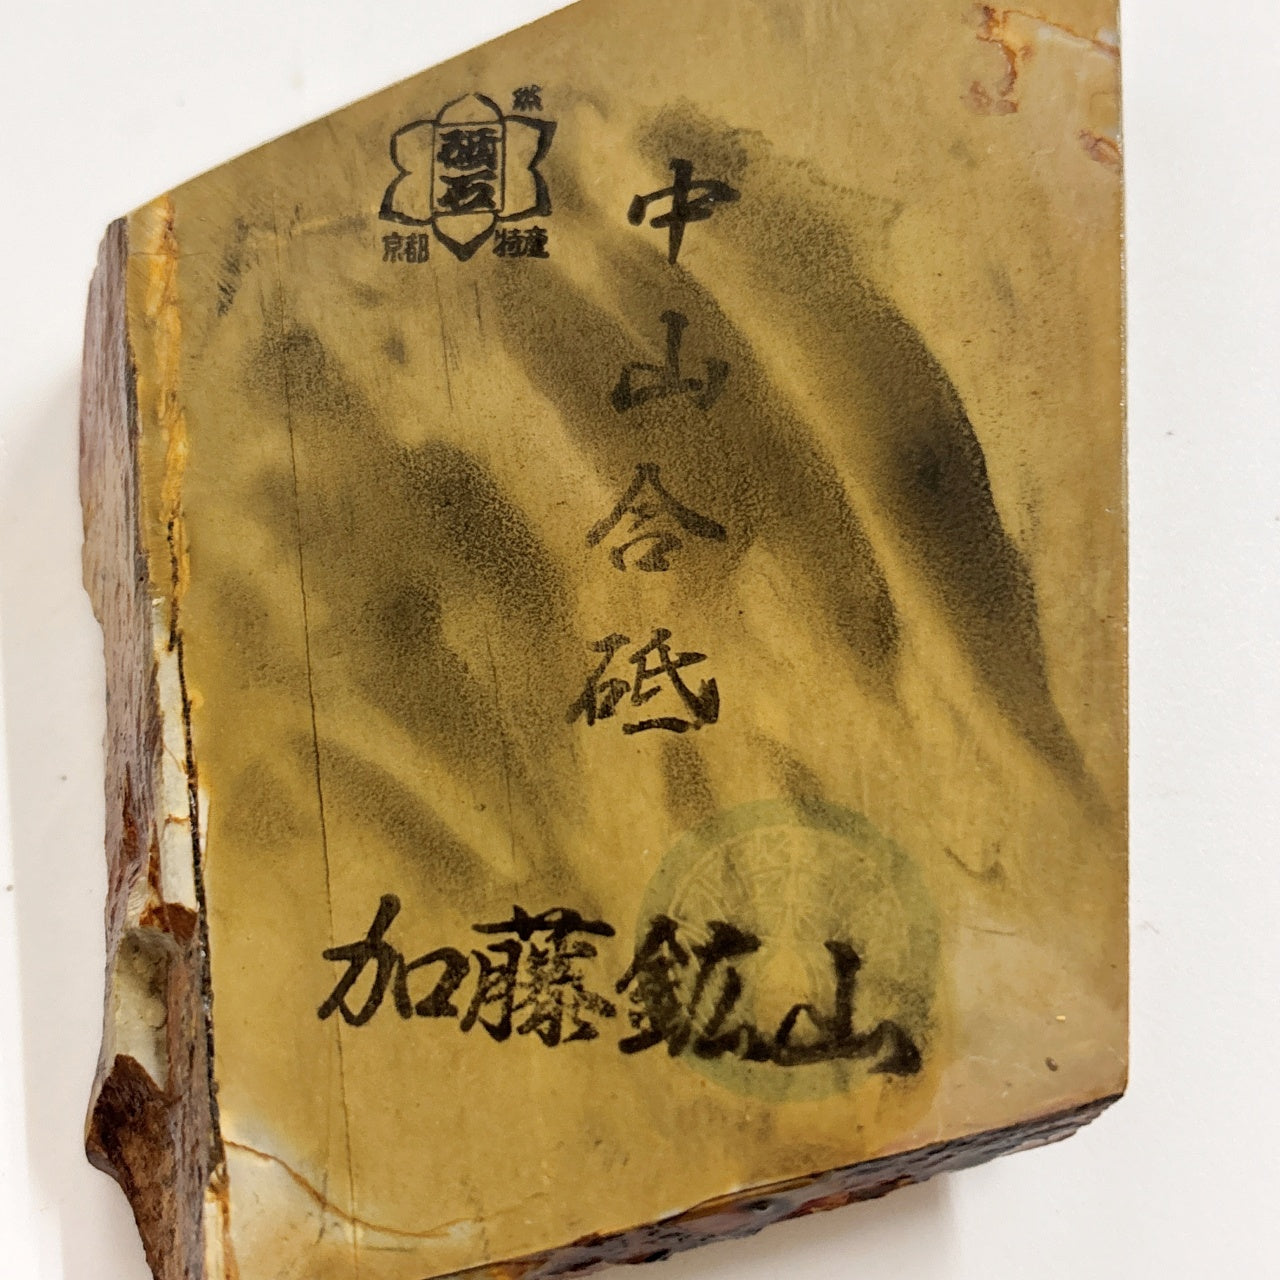 然
砥石
京都 特産
中山合砥
加藤鉱山